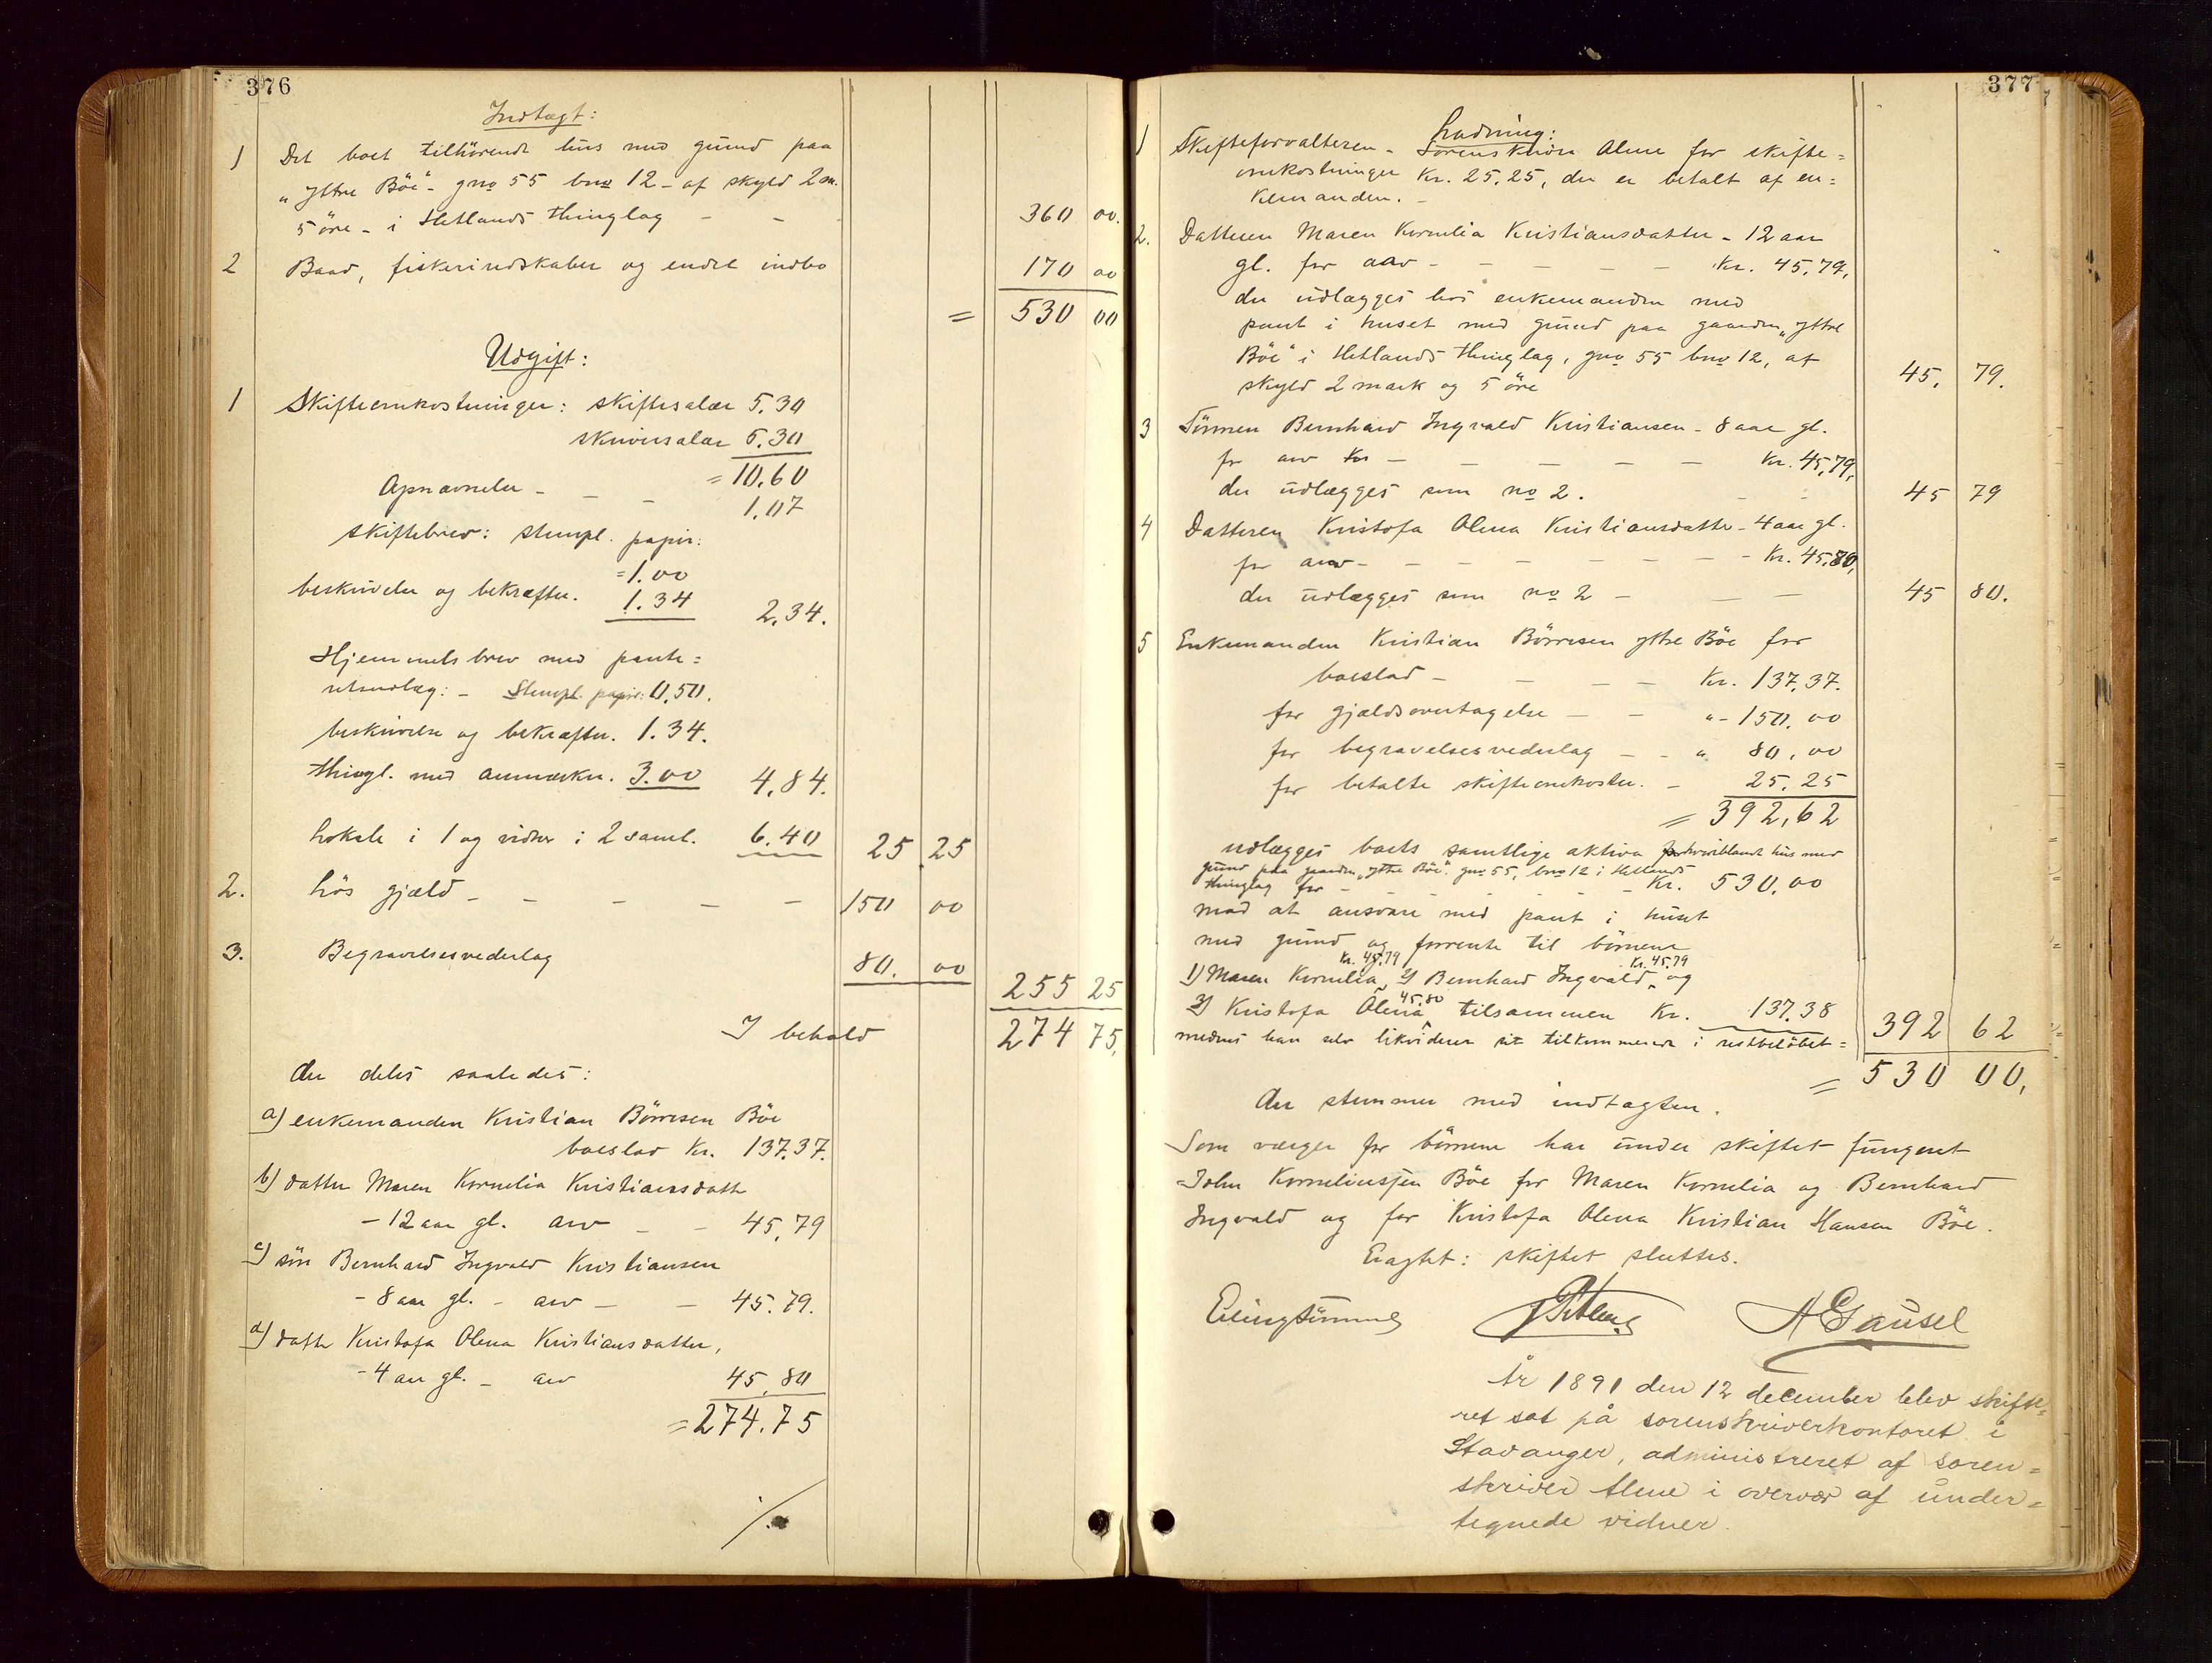 376
Indtægt:
1 Det boet tilhörende hus med grund paa
„Yttre Böe“ - gno 55 bno 12 - af skyld 2 m.
5 öre - i Hetlands thinglag - - 360 00.
2 Baad, fiskeriredskaber og endel indbo 170 00
= 530 00
Udgift:
1 Skifteomkostninger: skiftesalær 5.30
skriversalær 5.30
= 10.60
- - - 1.07
skiftebrev: stempl. papir:
= 1.00
beskrivelse og bekræftn. 1.34 2.34.
Hjemmelsbrev med pante=
retsudlæg: - Stempl. papir: 0,50.
beskrivelse og bekræftn. 1.34.
thingl. med anmærkn. 3.00 4,84.
Lokale i 1 og vidner i 2 saml. 6.40 25 25
2. Lös gjæld - - - - - 150 00
3. Begravelsesvederlag 80. 00
255 25
I behold 274 75.
der deles saaledes:
a) enkemanden Kristian Börresen Böe
boeslod Kr. 137.37.
b) datter Maren Kornelia Kristiansdatter
- 12 aar gl. arv - - 45,79
c) sön Bernhard Ingvald Kristiansen
- 8 aar gl. - arv - - 45.79.
d) datter Kristofa Olena Kristiansdatter,
- 4 aar gl. - arv 45,80
= 274.75
./.
377
Ladning:
1 Skifteforvalteren - Sorenskriver Alme for skifte=
omkostninger Kr. 25.25, der er betalt af en=
kemanden. -
2. Datteren Maren Kornelia Kristiansdatter - 12 aar
gl. for arv - - - - - Kr. 45.79,
der udlægges hos enkemanden med
pant i huset med grund paa gaarden „Yttre
Böe“ i Hetlands thinglag, gno 55 bno 12, af
skyld 2 mark og 5 öre 45. 79.
3 Sönnen Bernhard Ingvald Kristiansen - 8 aar gl.
for arv Kr - - - - - Kr. 45,79,
der udlægges som no 2. - - 45 79
4 Datteren Kristofa Olena Kristiansdatter - 4 aar gl.
for arv - - - - - - - Kr. 45,80,
der udlægges som no 2 - - - 45 80.
5 Enkemanden Kristian Börresen Yttre Böe for
boeslod - - - - Kr. 137,37.
for gjældsovertagelse - - " - 150.00
for begravelsesvederlag - - " 80,00
for betalte skifteomkostn. - 25.25
= 392,62
udlægges boets samtlige aktiva hvoriblandt hus med
grund paa gaarden „Yttre Böe“. gno 55, bno 12 i Hetlands
thinglag for - - - - - Kr. 530.00
mod at ansvare med pant i huset
med grund og forrente til börnene
1) Maren Kornelia Kr. 45.79, 2) Bernhard Ingvald Kr. 45.79, og
3) Kristofa Olena 45.80 tilsammen Kr. 137.38
medens han selv likviderer sit tilkommende i restbelöbet = 392 62
= 530 00,
der stemmer med indtægten.
Som værger for börnene har under skiftet fungeret
John Korneliussen Böe for Maren Kornelia og Bernhard
Ingvald og for Kristofa Olena Kristian Hansen Böe.
Eragtet: skiftet sluttes.
A Gausel
År 1891 den 12 december blev skifte=
ret sat på sorenskriverkontoret i
Stavanger, administreret af soren=
skriver Alme i overvær af under=
tegnede vidner.